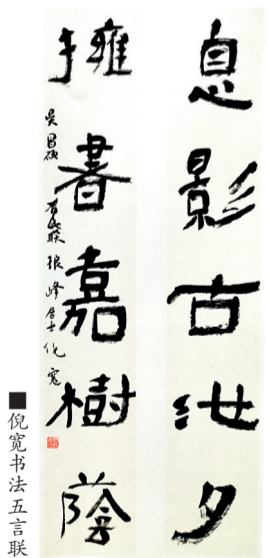 息影古池夕
擁書嘉樹蔭
吴昌硕有此联 根峰居士 倪寬
■倪宽书法五言联